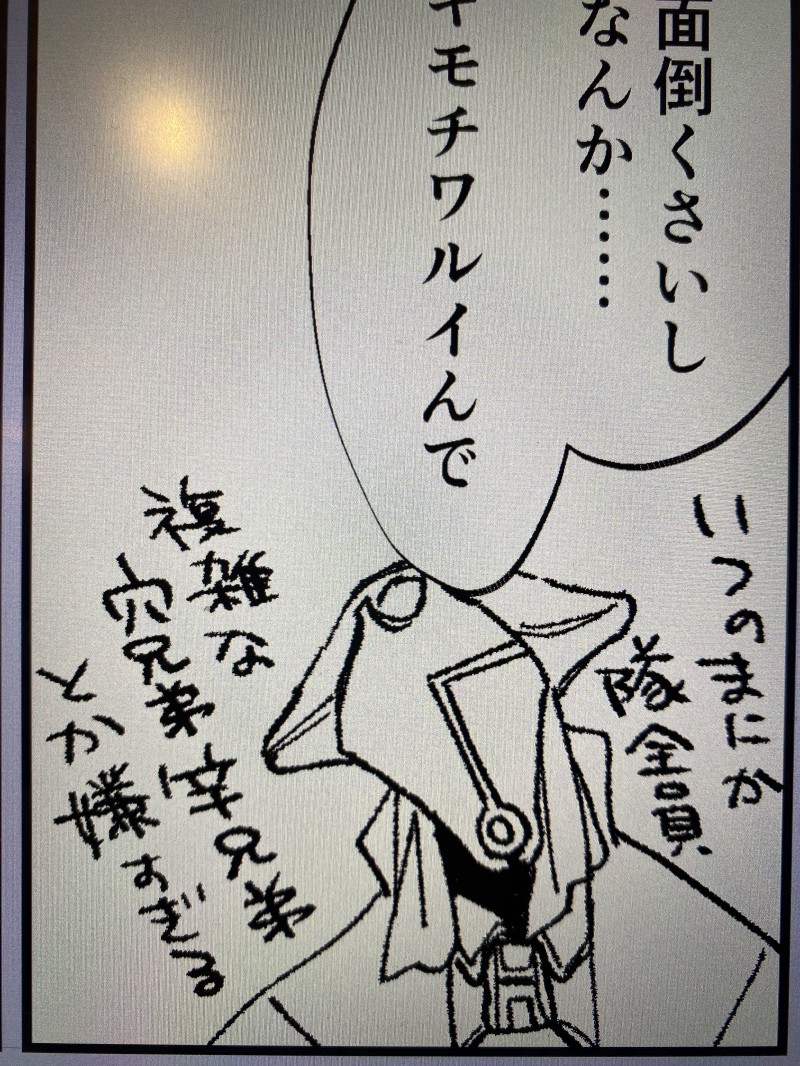 面倒くさいし
なんか……
キモチワルイんで
いつのまにか
隊全員
複雑な
穴兄弟
兄弟
とか嫌すぎる